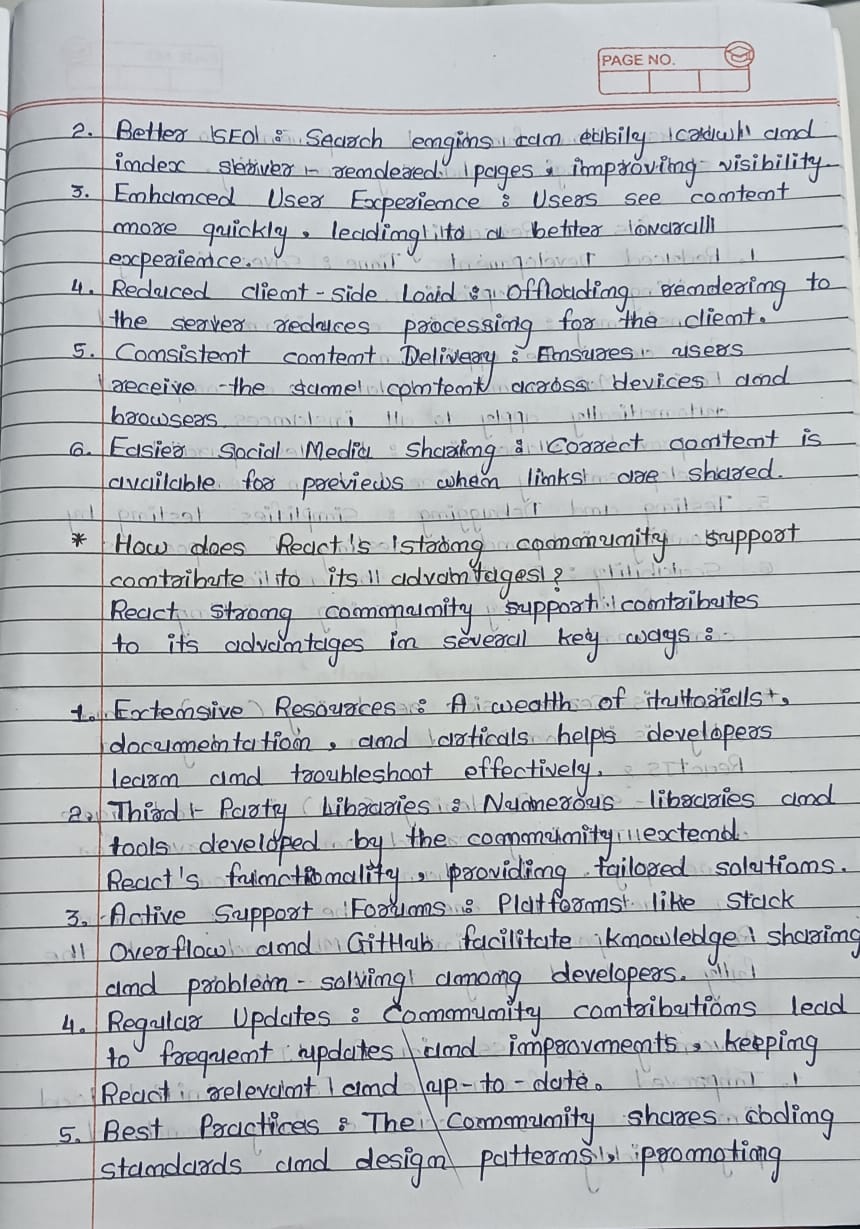 PAGE NO.
2. Better SEO : Search engins can easily crawl and
index server - rendered pages, improving visibility
3. Enhanced User Experience : Users see content
more quickly, leading to a better overall
experience.
4. Reduced client-side Load : Offloading rendering to
the server reduces processing for the client.
5. Consistent content Delivery : Ensures users
receive the same content across devices and
browsers
6. Easier Social Media Sharing : Correct content is
available for previews when links are shared.
* How does React's strong community support
contribute to its advantages ?
React strong community support contributes
to its advantages in several key ways :
1. Extensive Resources : A wealth of tutorials,
documentation, and articals helps developers
learn and troubleshoot effectively.
2. Third - Party Libraries : Numerous libraries and
tools developed by the community extend
React's functionality, providing tailored solutions.
3. Active Support Forums : Platforms like Stack
Overflow and GitHub facilitate knowledge sharing
and problem-solving among developers.
4. Regular Updates : Community contributions lead
to frequent updates and improvements, keeping
React relevant and up-to-date.
5. Best Practices : The Community shares coding
standards and design patterns, promoting